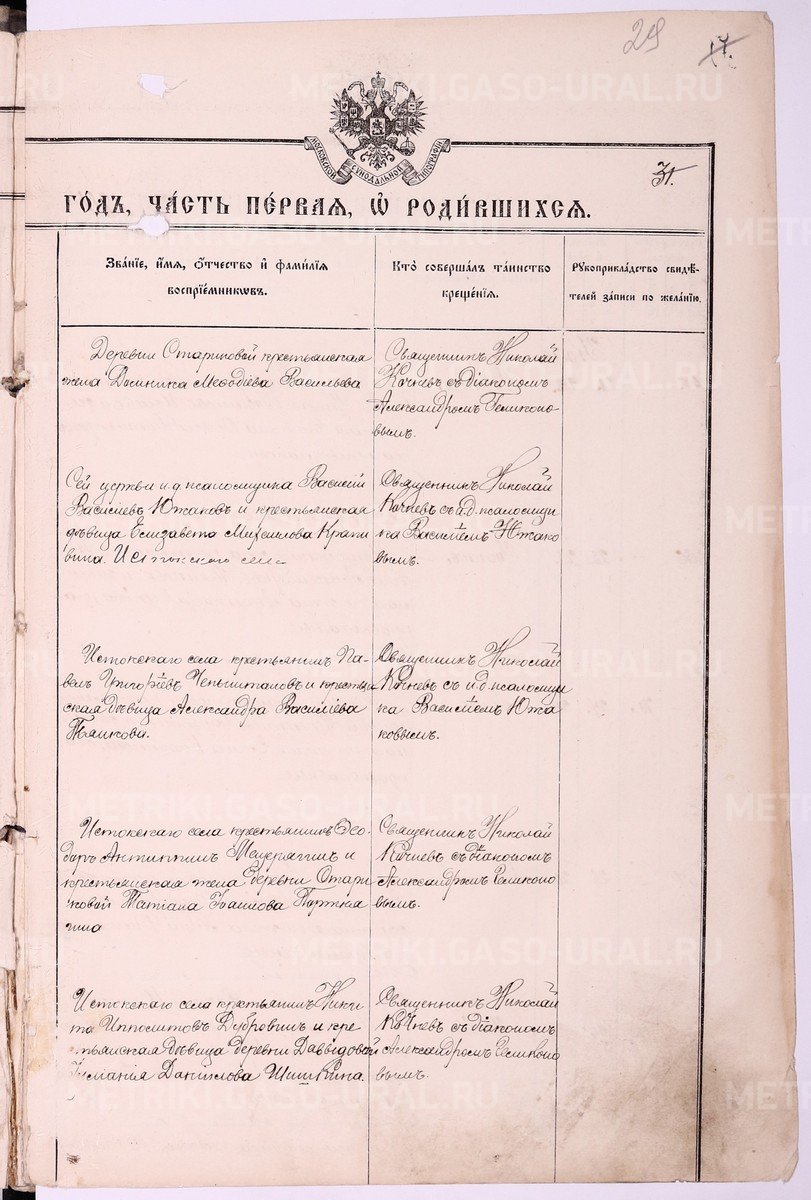 29
17.
31.
МОСКОВСКОЙ СѴНОДАЛЬНОЙ ТИПОГРАФІИ
ГО́ДЪ, ЧА́СТЬ ПЕ́РВАЯ, Ѡ҆ РОДИ́ВШИХСЯ.
Зва́нїе, и҆́мя, ѻ҆́тчество и҆ фами́лїя
воспрїе́мниковъ.
Кто̀ соверша́лъ та́инство
креще́нїя.
Рукоприкла́дство свидѣ́-
телей за́писи по жела́нїю.
Деревни Стариковой крестьянская
жена Домника Меѳодіева Васильева
Священникъ Николай
Кочневъ съ діакономъ
Александромъ Геликоно-
вымъ.
Сей церкви и.д. псаломщика Василій
Василіевъ Южаковъ и крестьянская
дѣвица Елизавета Михаилова Крапи
вина. Истокского села
Священникъ Николай
Кочневъ съ и.д. псаломщи
ка Василіемъ Южако
вымъ.
Истокскаго села крестьянинъ Па-
велъ Григоріевъ и крестья
ская дѣвица Александра Василіева
Пьянкова.
Священникъ Николай
Кочневъ съ и.д. псаломщи
ка Василіемъ Южа
ковымъ.
Истокскаго села крестьянинъ Ѳео-
доръ Антипинъ Мещерягинъ и
крестьянская жена деревни Стари
ковой Татіана Іоаннова Портня
гина
Священникъ Николай
Кочневъ съ діакономъ
Александромъ Геликоно
вымъ.
Истокскаго села крестьянинъ Ники
та Ипполитовъ Дубровинъ и кре
стьянская дѣвица деревни Давыдовой
Данилова Шишкина.
Священникъ Николай
Кочневъ съ діакономъ
Александромъ Геликоно
вымъ.
METRIKI.GASO-URAL.RU